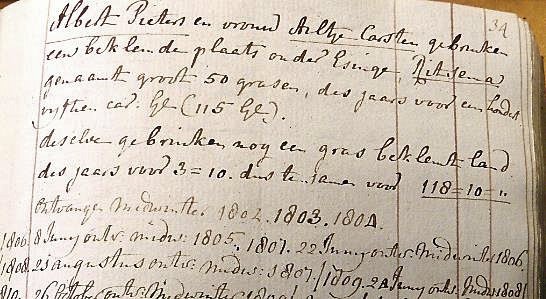 34
Albert Pieters en vrouw Aeltje Carsten gebruiken
een beklemde plaats onder Esinge, Ritsema
genaamt groot 50 grasen, des jaars voor een hondert
vyftien car: Gl (115 Gl).
deselve gebruiken nog een gras beklemt land
des jaars voor 3=10. dus te samen voor 118=10=..
ontvangen midwinter 1802. 1803. 1804.
1806 8 Juny ontv: midw: 1805. 1807. 22 Juny ontv: Midwinter 1806.
1808. 25 augustus ontv: midw: 1807/1809. 24 Juny ontv: Midw: 1808
26 October ontv: Midwinter